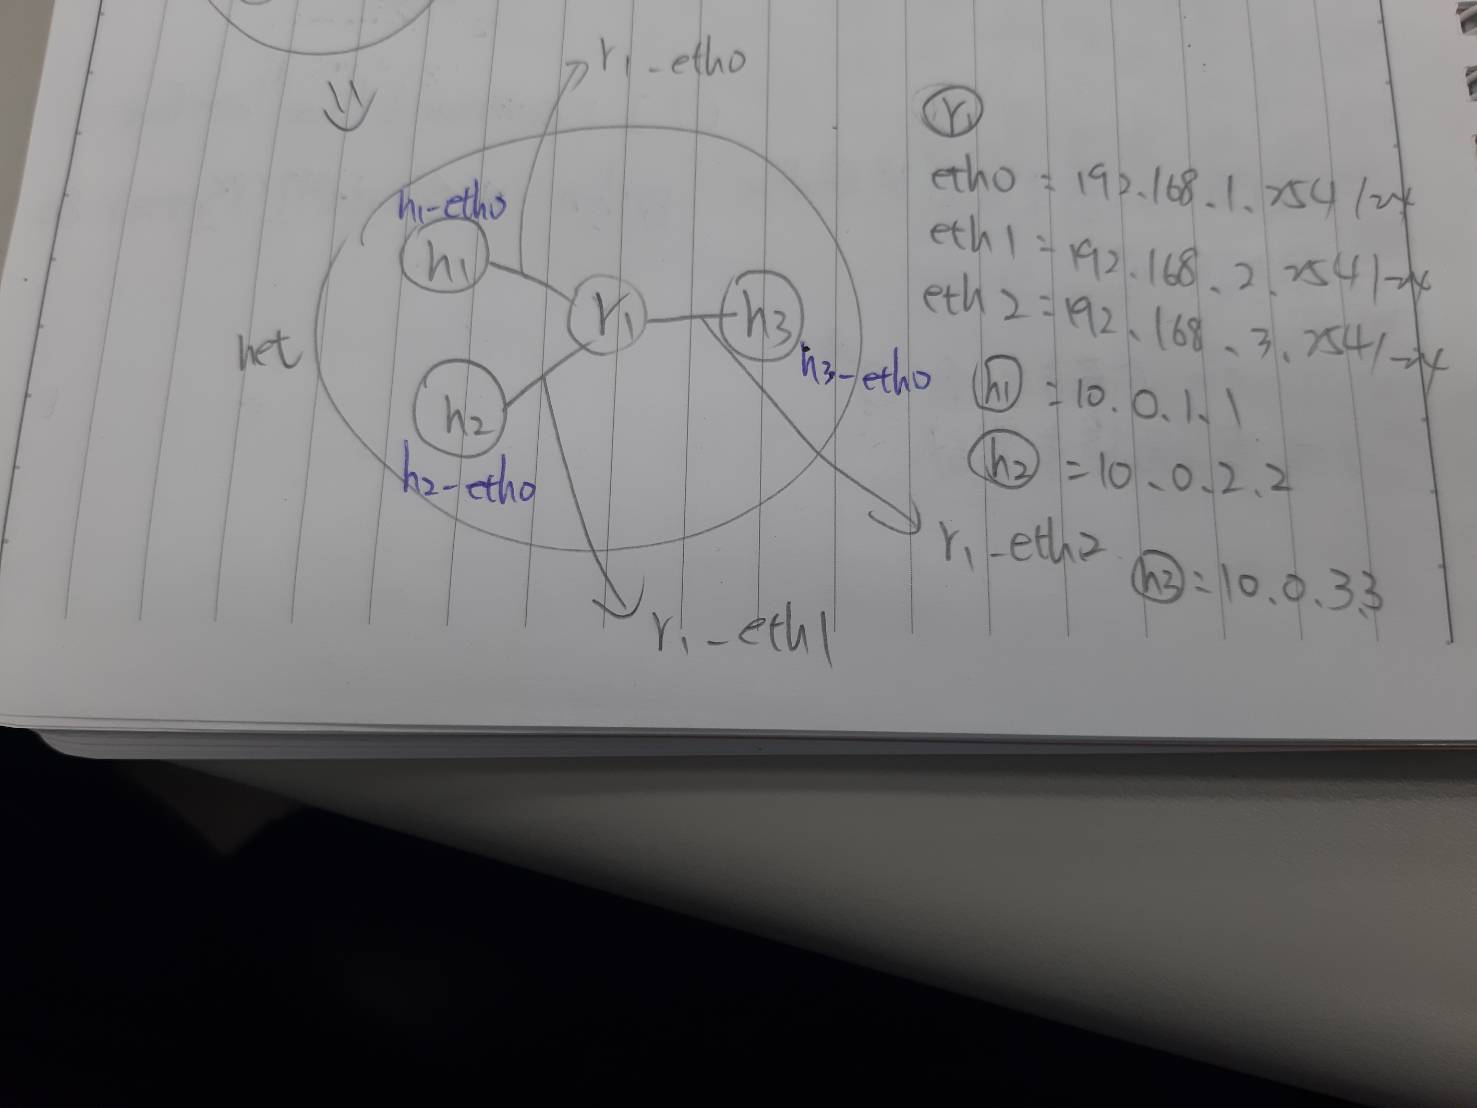 r1-eth0
h1-eth0
h1
r1
h3
net
h3-eth0
h2
h2-eth0
r1-eth2
r1-eth1
r1
eth0 = 192.168.1.254/24
eth1 = 192.168.2.254/24
eth2 = 192.168.3.254/24
h1 = 10.0.1.1
h2 = 10.0.2.2
h3 = 10.0.3.3